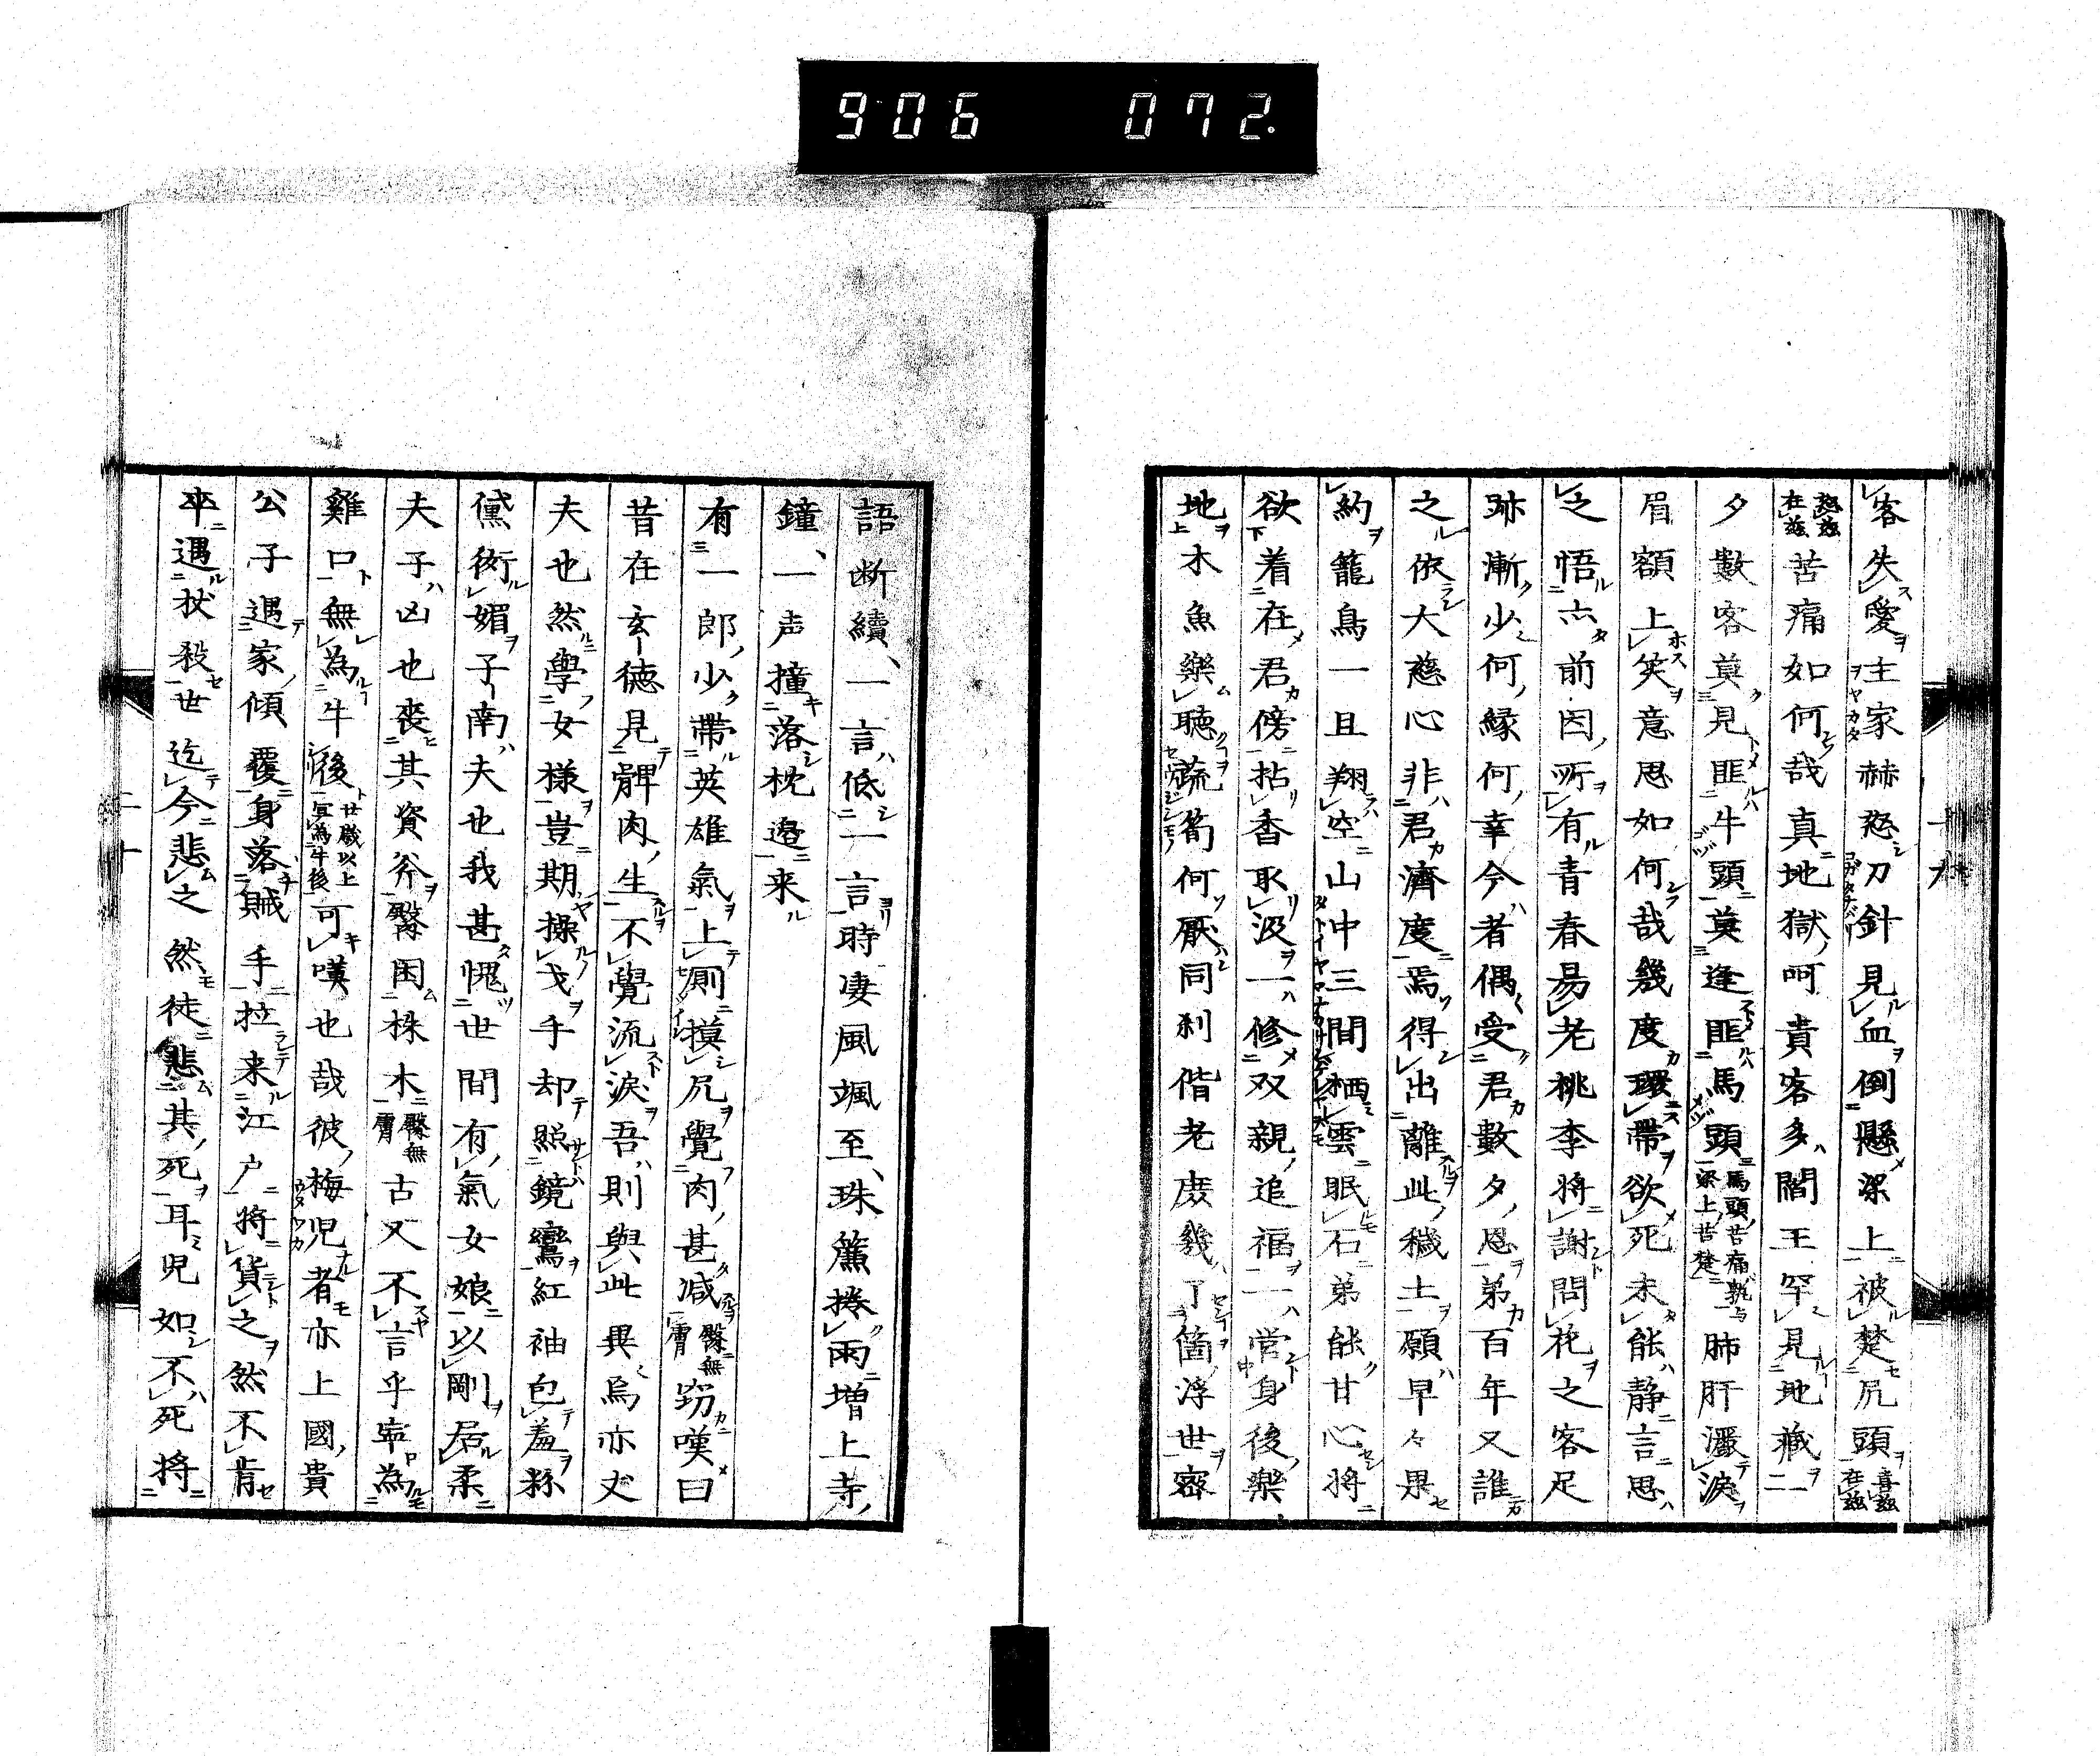 906 072.
客失愛主家赫怒刀針見血倒懸梁上被楚尻頭喜茲在茲
怒茲在茲苦痛如何哉真地獄呵責客多閻王罕見地蔵一
夕數客莫見匪牛頭莫逢匪馬頭馬頭苦痛孰与梁上苦楚肺肝濺淚
眉額上笑意思如何哉幾度環帶欲死未能静言思
之悟六前因所有青春易老桃李將謝問花之客足
跡漸少何緣何幸今者偶受君數夕恩弟百年又誰
之依大慈心非君濟度焉得出離此穢土願早々果
約籠鳥一旦翔空山中三間栖雲眠石弟能甘心將
欲着在君傍拈香取汲一修双親追福一営身後樂
地木魚樂聽蔬筍何厭同刹偕老庶幾了箇浮世密
語断續一言低一言時凄風颯至珠簾捲雨增上寺
鐘一声撞落枕邉来
有一郎少帶英雄氣上厠摸尻覺肉甚減臀無膚窃嘆曰
昔在玄德見髀肉生不覺流淚吾則與此異烏亦丈
夫也然學女様豈期操戈手却照鏡鸞紅袖包羞粉
黛衒媚子南夫也我甚愧世間有氣女娘以剛居柔
夫子凶也喪其資斧臀困株木臀無膚古又不言乎寧為
雞口無為牛後廿歳以上宜為牛後可嘆也哉彼梅児者亦上國貴
公子遇家傾覆身落賊手拉来江户將貨之然不肯
卒遇杖殺世迄今悲之然徒悲其死耳児如不死將